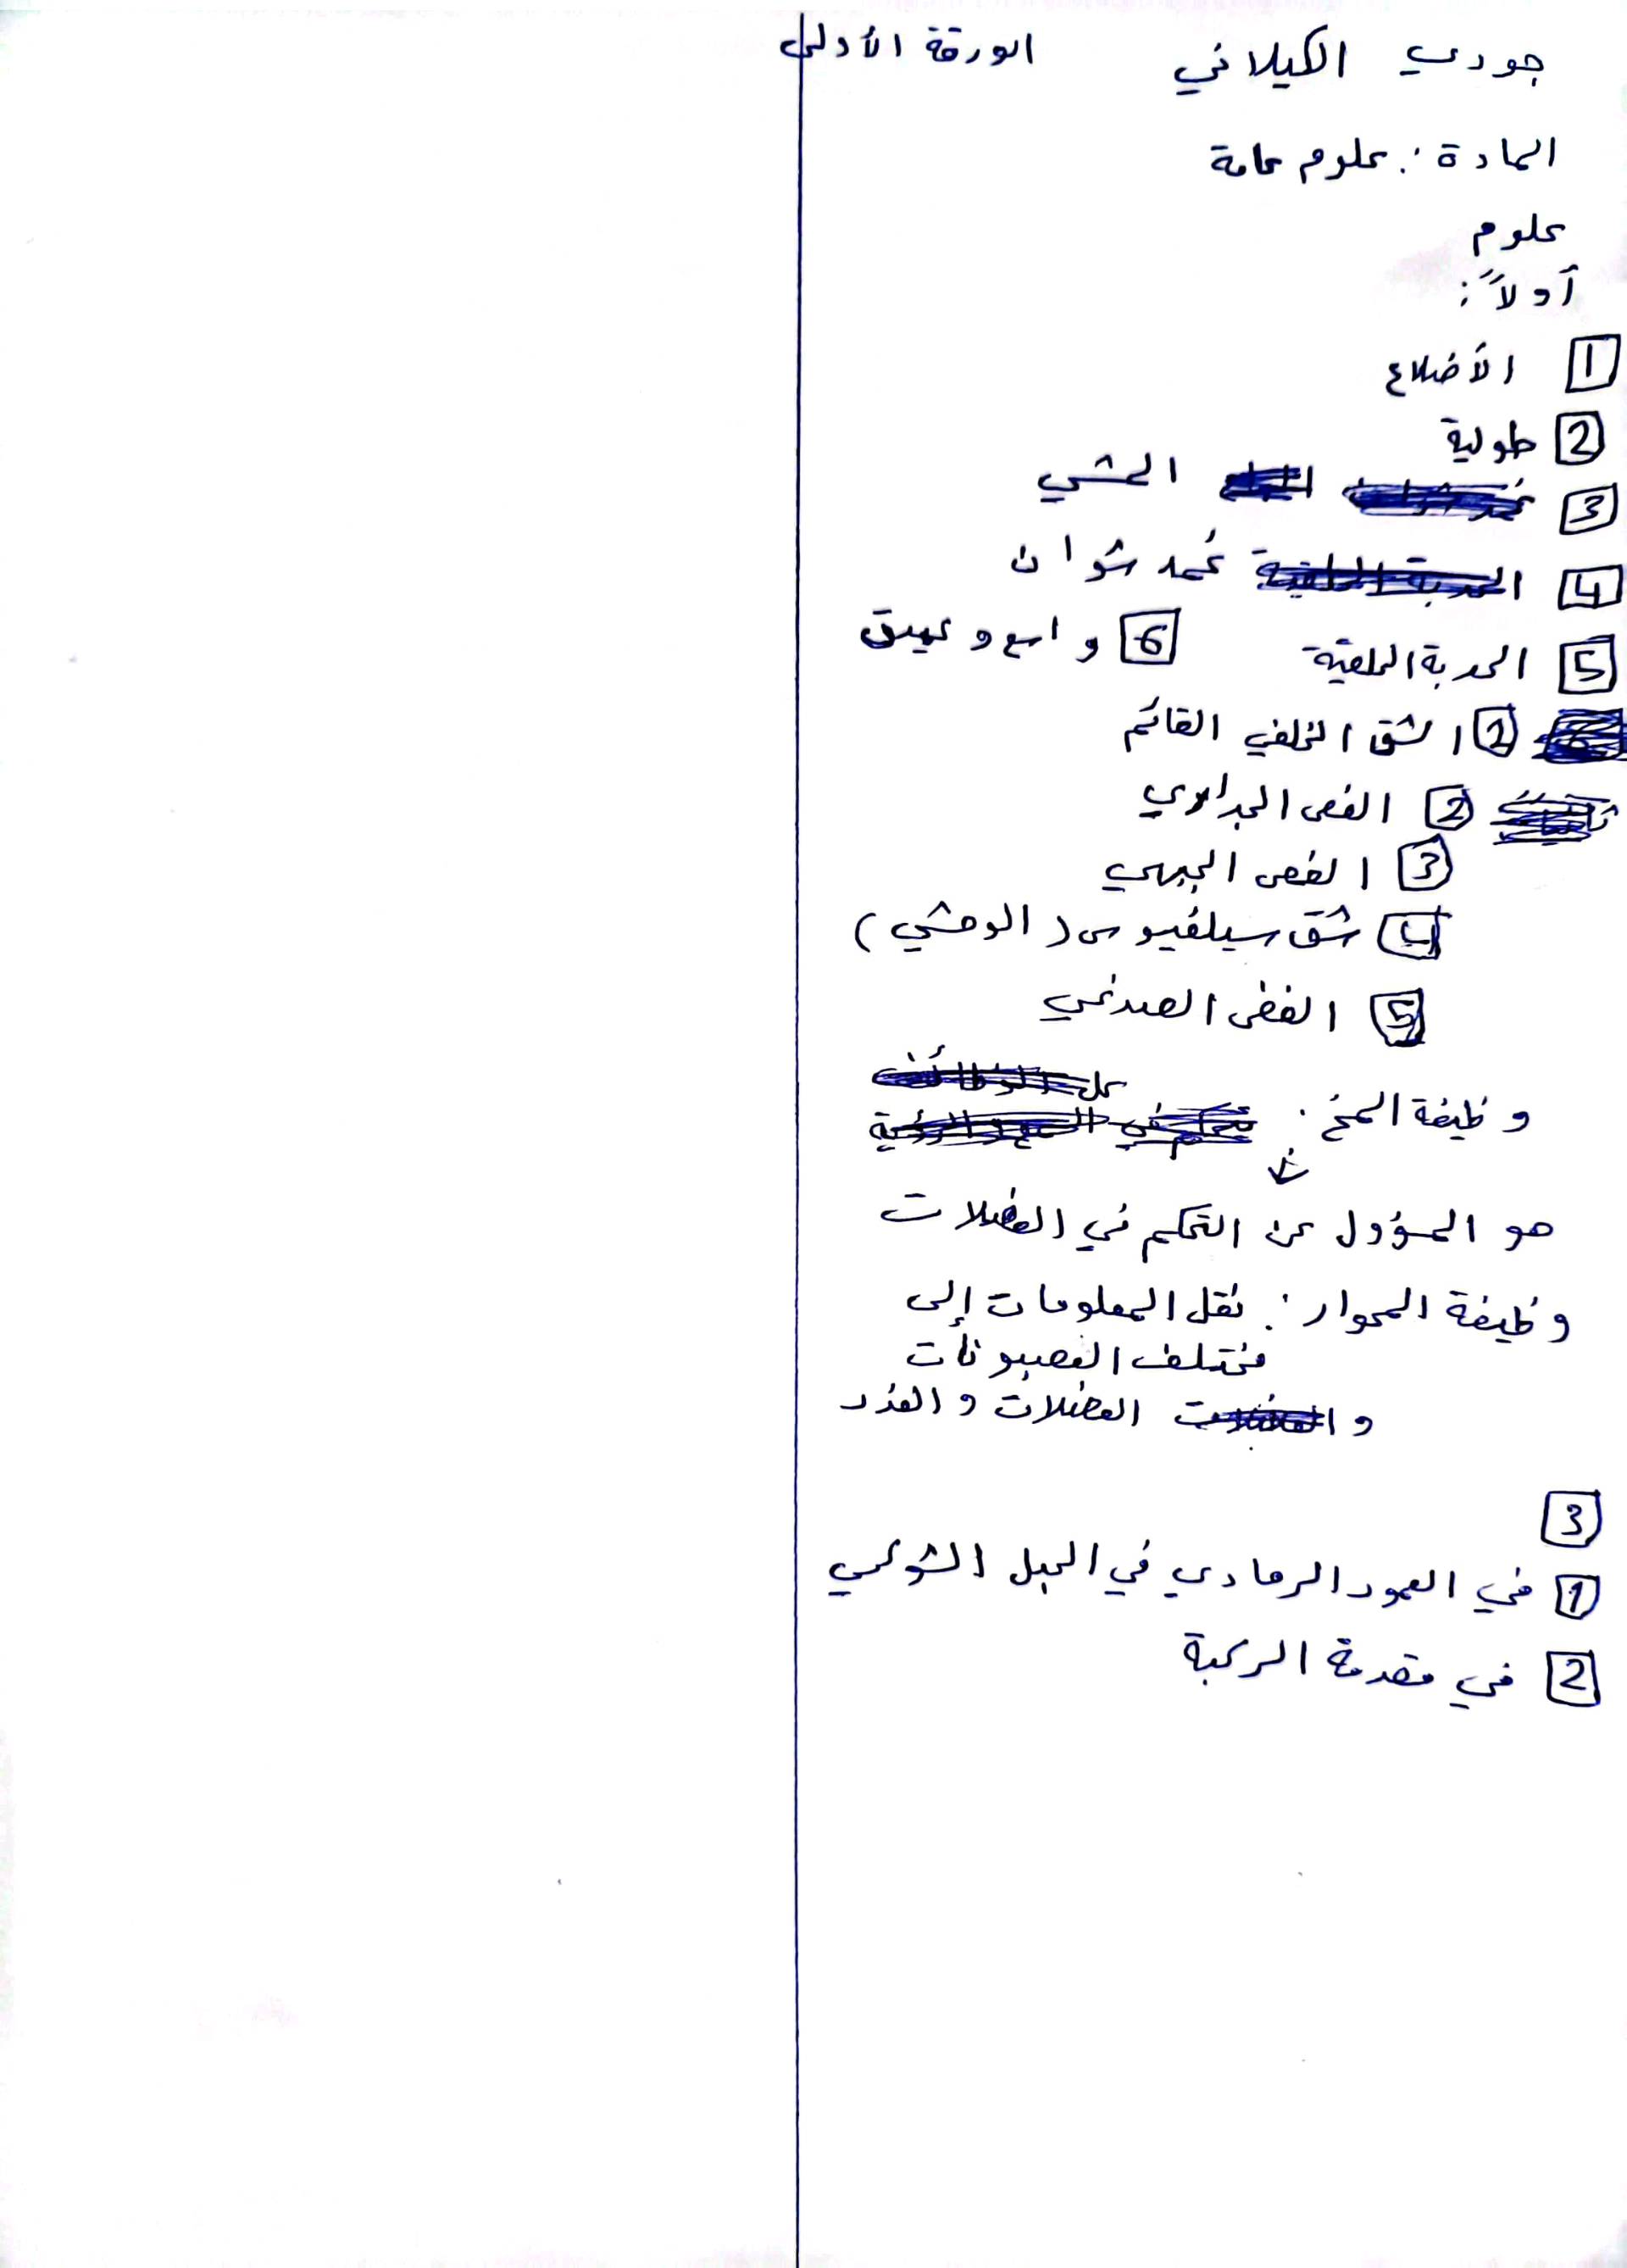 جودي الكيلاني الورقة الأولى
المادة: علوم عامة
علوم
أولاً:
1 الأضلاع
2 طولية
3 المشي
4 غمد شوان
5 الحدبة الحلقية 6 واسع وعميق
1 الشق الخلفي القائم
2 الفص الجداري
3 الفص الجبهي
4 شق سيلفيوس (الوحشي)
5 الفض الصدغي
وظيفة المخ:
هو المسؤول عن التحكم في العضلات
وظيفة المحوار: نقل المعلومات إلى
مختلف العصبونات
و العضلات والغدد
3
1 في العمود الرمادي في الحبل الشوكي
2 في مقدمة الركبة